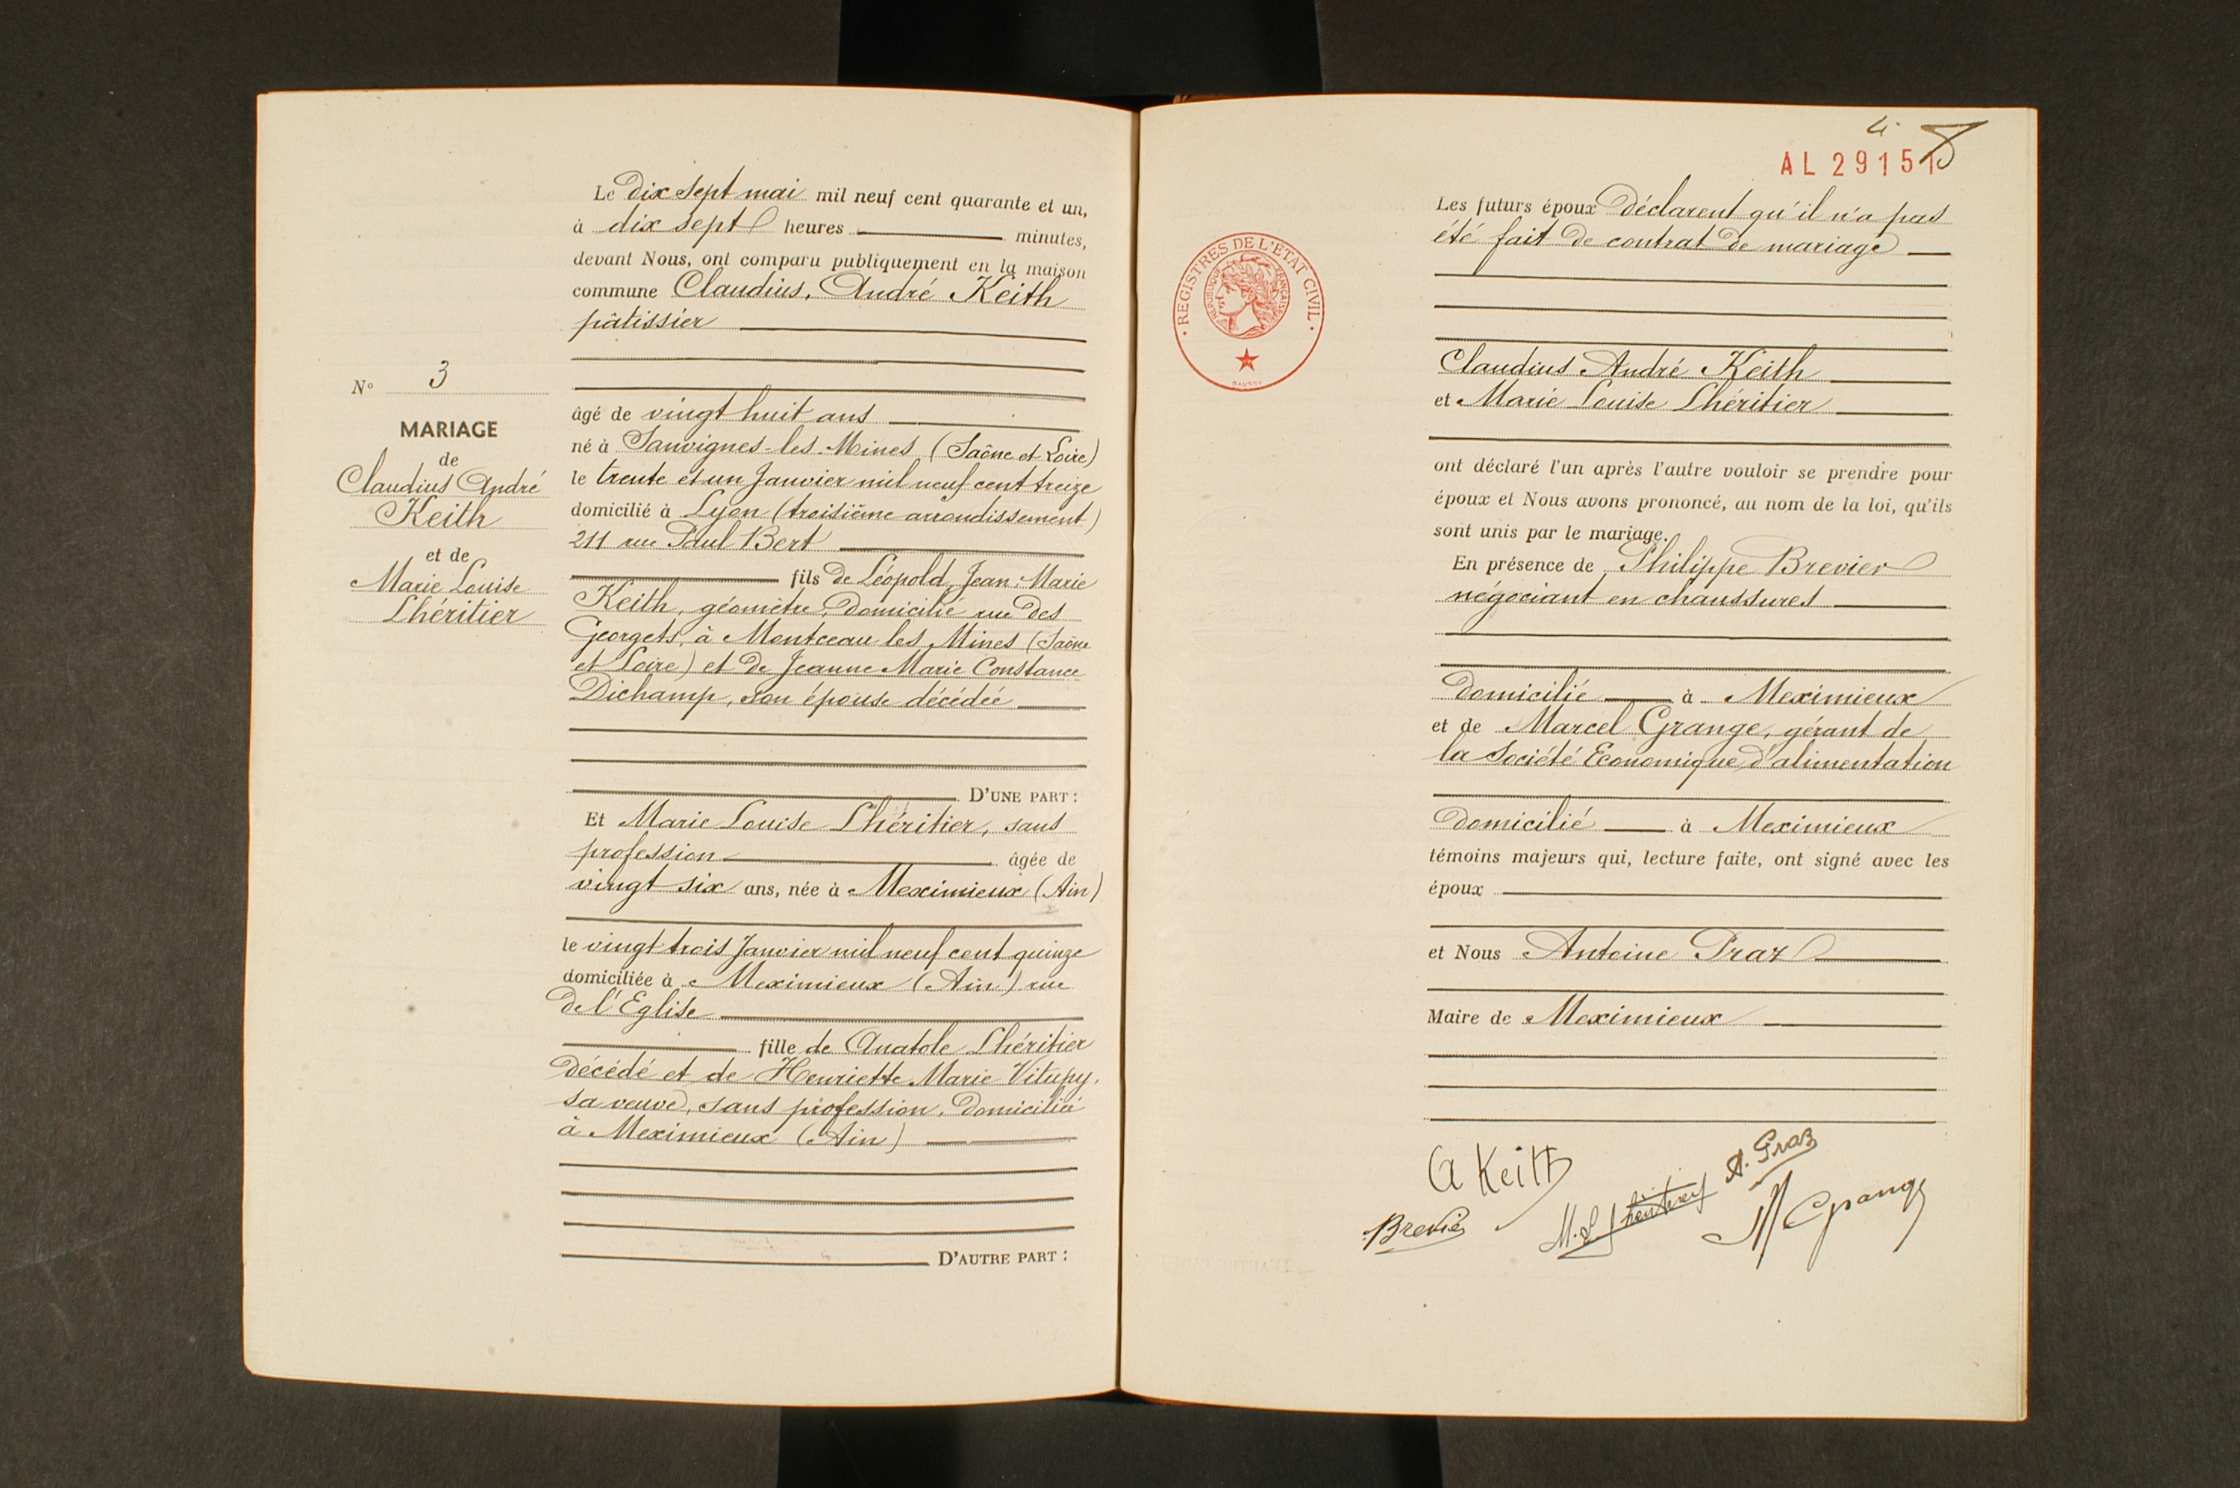 Le dix sept mai mil neuf cent quarante et un,
à dix sept heures minutes,
devant Nous, ont comparu publiquement en la maison
commune Claudius, André Keith
pâtissier
N° 3
MARIAGE
de
Claudius André
Keith
et de
Marie Louise
Lhéritier
âgé de vingt huit ans
né à Sanvignes-les-Mines (Saône et Loire)
le trente et un Janvier mil neuf cent treize
domicilié à Lyon (troisième arrondissement)
211 rue Paul Bert
fils de Léopold, Jean-Marie
Keith, géomètre, domicilié rue des
Georgets, à Montceau les Mines (Saône
et Loire) et de Jeanne Marie Constance
Dichamp, son épouse décédée
D'UNE PART :
Et Marie Louise Lhéritier, sans
profession âgée de
vingt six ans, née à Meximieux (Ain)
le vingt trois Janvier mil neuf cent quinze
domiciliée à Meximieux (Ain) rue
de l'Eglise
fille de Anatole Lhéritier
décédé et de Henriette Marie Vitupy,
sa veuve, sans profession, domiciliée
à Meximieux (Ain)
D'AUTRE PART :
4
AL 29151
REGISTRES DE L'ETAT CIVIL
REPUBLIQUE FRANÇAISE
Les futurs époux déclarent qu'il n'a pas
été fait de contrat de mariage
Claudius André Keith
et Marie Louise Lhéritier
ont déclaré l'un après l'autre vouloir se prendre pour
époux et Nous avons prononcé, au nom de la loi, qu'ils
sont unis par le mariage.
En présence de Philippe Brevier
négociant en chaussures
domicilié à Meximieux
et de Marcel Grange, gérant de
la Société Economique d'alimentation
domicilié à Meximieux
témoins majeurs qui, lecture faite, ont signé avec les
époux
et Nous Antoine Praz
Maire de Meximieux
A. Praz
A Keith
Brevier
M.L. Lhéritier
M Grange